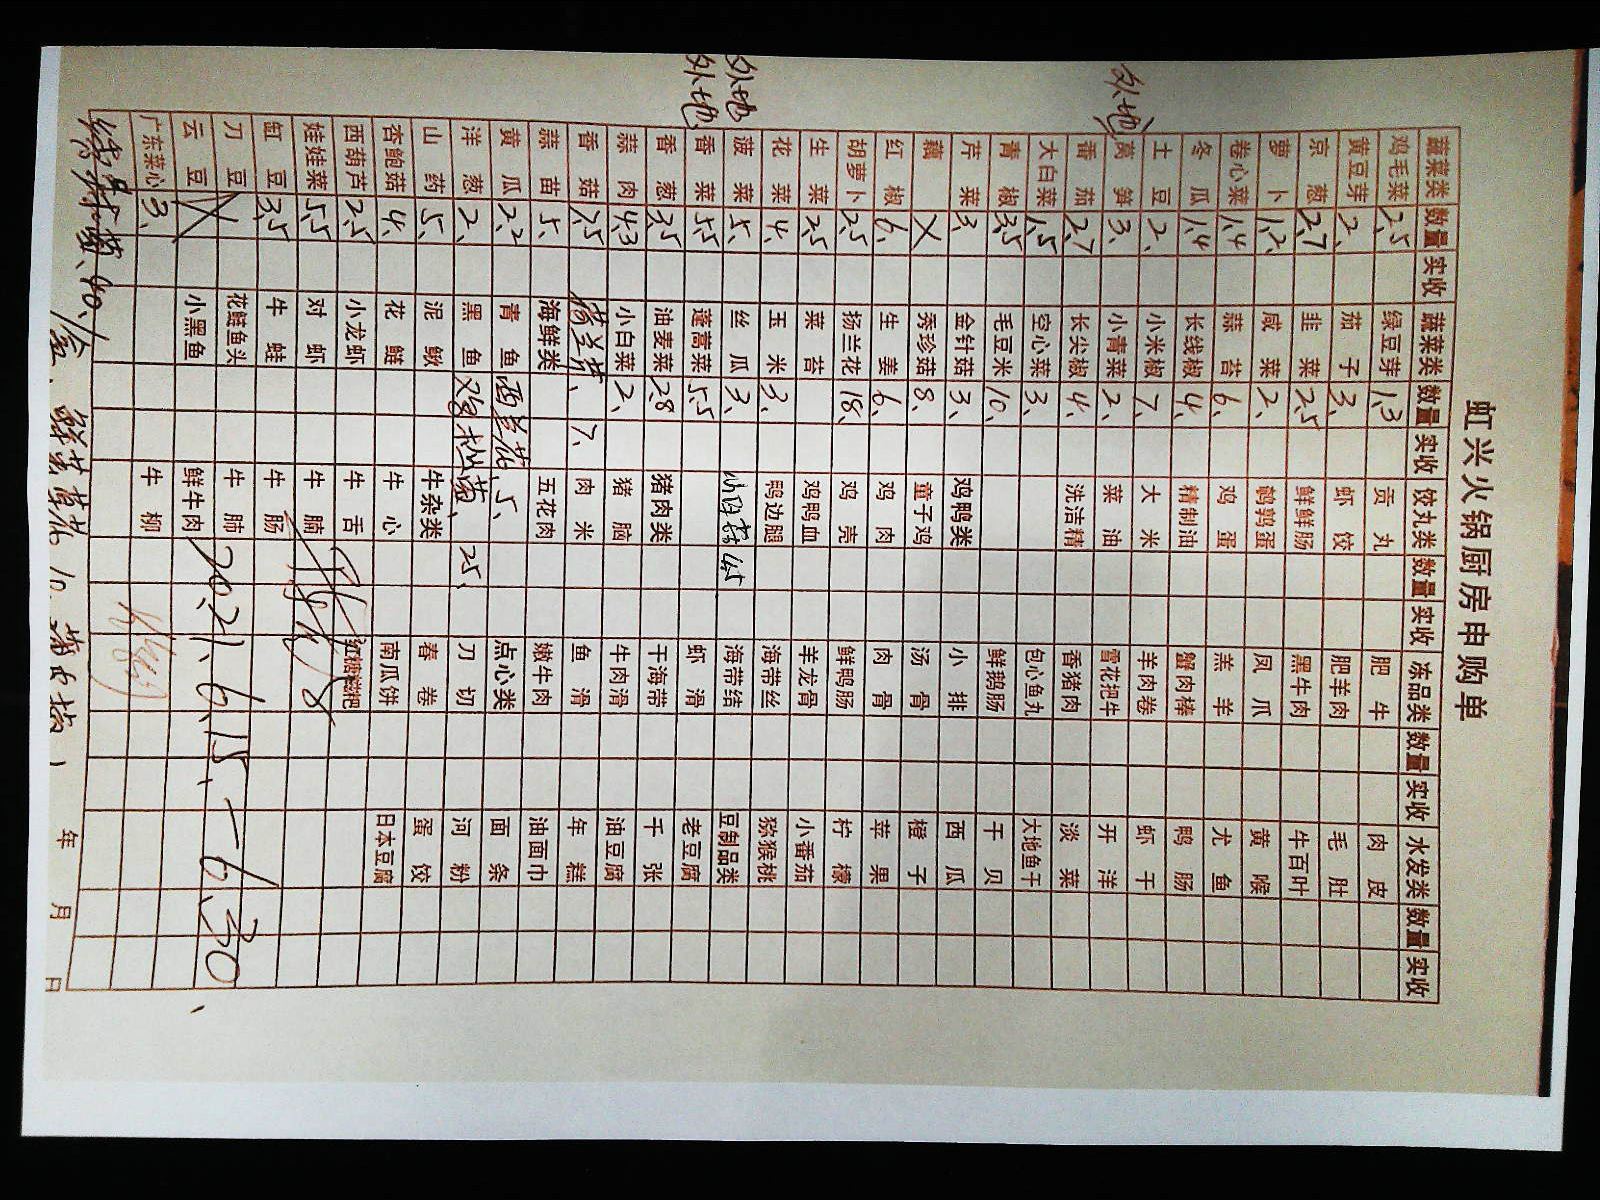 虹兴火锅厨房申购单
蔬菜类 数量 实收 蔬菜类 数量 实收 饺丸类 数量 实收 冻品类 数量 实收 水发类 数量 实收
鸡毛菜 2.5 绿豆芽 1.3 贡丸 肥牛 肉皮
黄豆芽 2、 茄子 3、 虾饺 肥羊肉 毛肚
京葱 2.7 韭菜 2.5 鲜鲜肠 黑牛肉 牛百叶
萝卜 1.2 咸菜 2、 鹌鹑蛋 凤爪 黄喉
卷心菜 1.4 蒜苔 6、 鸡蛋 羔羊 尤鱼
冬瓜 1.4 长线椒 4、 精制油 蟹肉棒 鸭肠
土豆 2、 小米椒 7、 大米 羊肉卷 虾干
外地 莴笋 3、 小青菜 2、 菜油 雪花把牛 开洋
番茄 2.7 长尖椒 4、 洗洁精 香猪肉 淡菜
大白菜 1.5 空心菜 3、 包心鱼丸 大地鱼干
青椒 3.5 毛豆米 10、 鲜鹅肠 干贝
芹菜 3、 金针菇 3、 鸡鸭类 小排 西瓜
藕 X 秀珍菇 8、 童子鸡 汤骨 橙子
红椒 6、 生姜 6、 鸡肉 肉骨 苹果
胡萝卜 2.5 扬兰花 18、 鸡壳 鲜鸭肠 柠檬
生菜 2.5 菜苔 鸡鸭血 羊龙骨 小番茄
花菜 4、 玉米 3、 鸭边腿 海带丝 猕猴桃
外地 菠菜 5、 丝瓜 3、 4.5 海带结 豆制品类
外地 香菜 5.5 蓬蒿菜 5.5 虾滑 老豆腐
香葱 3.5 油麦菜 2.8 猪肉类 干海带 千张
蒜肉 4.3 小白菜 2、 猪脑 牛肉滑 油豆腐
香菇 7、 肉米 鱼滑 年糕
蒜苗 5、 海鲜类 五花肉 嫩牛肉 油面巾
黄瓜 2.2 青鱼 西兰花 5、 点心类 面条
洋葱 2、 黑鱼 鸡枞菌、25、 刀切 河粉
山药 5、 泥鳅 牛杂类 春卷 蛋饺
杏鲍菇 4、 花鲢 牛心 南瓜饼 日本豆腐
西葫芦 2.5 小龙虾 牛舌 红糖糍粑
娃娃菜 5.5 对虾 牛腩
缸豆 3.5 牛蛙 牛肠
刀豆 X 花鲢鱼头 牛肺
云豆 X 小黑鱼 鲜牛肉 2021、6.15、-6.30、
广东菜心 3、 牛柳
年 月 日